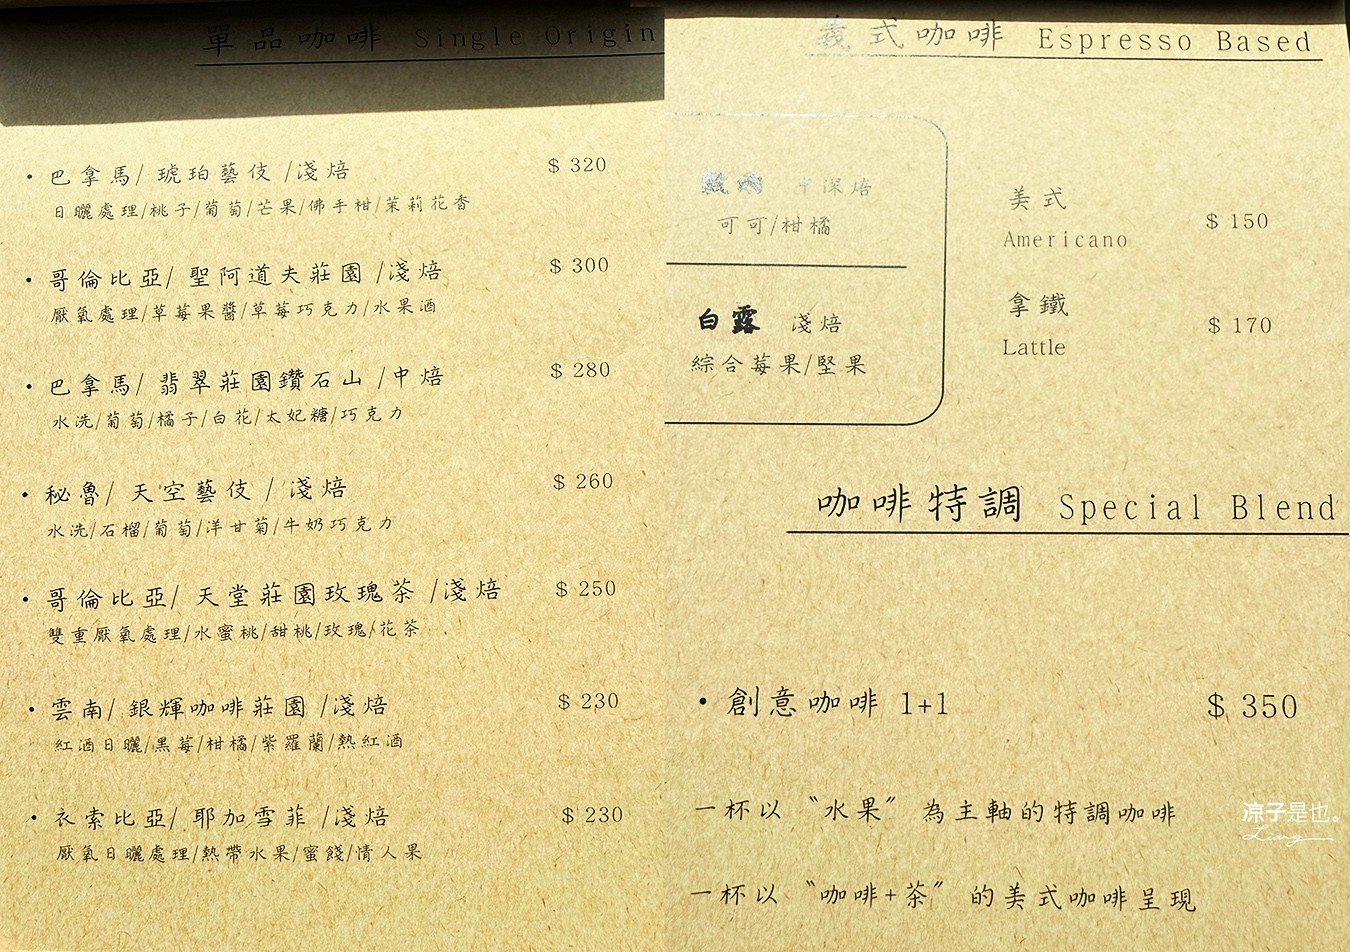 單品咖啡 Single Origin
・巴拿馬/ 琥珀藝伎 /淺焙 $ 320
日曬處理/桃子/葡萄/芒果/佛手柑/茉莉花香
・哥倫比亞/ 聖阿道夫莊園 /淺焙 $ 300
厭氧處理/草莓果醬/草莓巧克力/水果酒
・巴拿馬/ 翡翠莊園鑽石山 /中焙 $ 280
水洗/葡萄/橘子/白花/太妃糖/巧克力
・秘魯/ 天空藝伎 / 淺焙 $ 260
水洗/石榴/葡萄/洋甘菊/牛奶巧克力
・哥倫比亞/ 天堂莊園玫瑰茶 /淺焙 $ 250
雙重厭氧處理/水蜜桃/甜桃/玫瑰/花茶
・雲南/ 銀輝咖啡莊園 /淺焙 $ 230
紅酒日曬/黑莓/柑橘/紫羅蘭/熱紅酒
・衣索比亞/ 耶加雪菲 /淺焙 $ 230
厭氧日曬處理/熱帶水果/蜜餞/情人果
義式咖啡 Espresso Based
中深焙
可可/柑橘
白露 淺焙
綜合莓果/堅果
美式 $ 150
Americano
拿鐵 $ 170
Lattle
咖啡特調 Special Blend
・創意咖啡 1+1 $ 350
一杯以 〝水果〞 為主軸的特調咖啡
一杯以 〝咖啡+茶〞 的美式咖啡呈現
涼子是也。
Liang